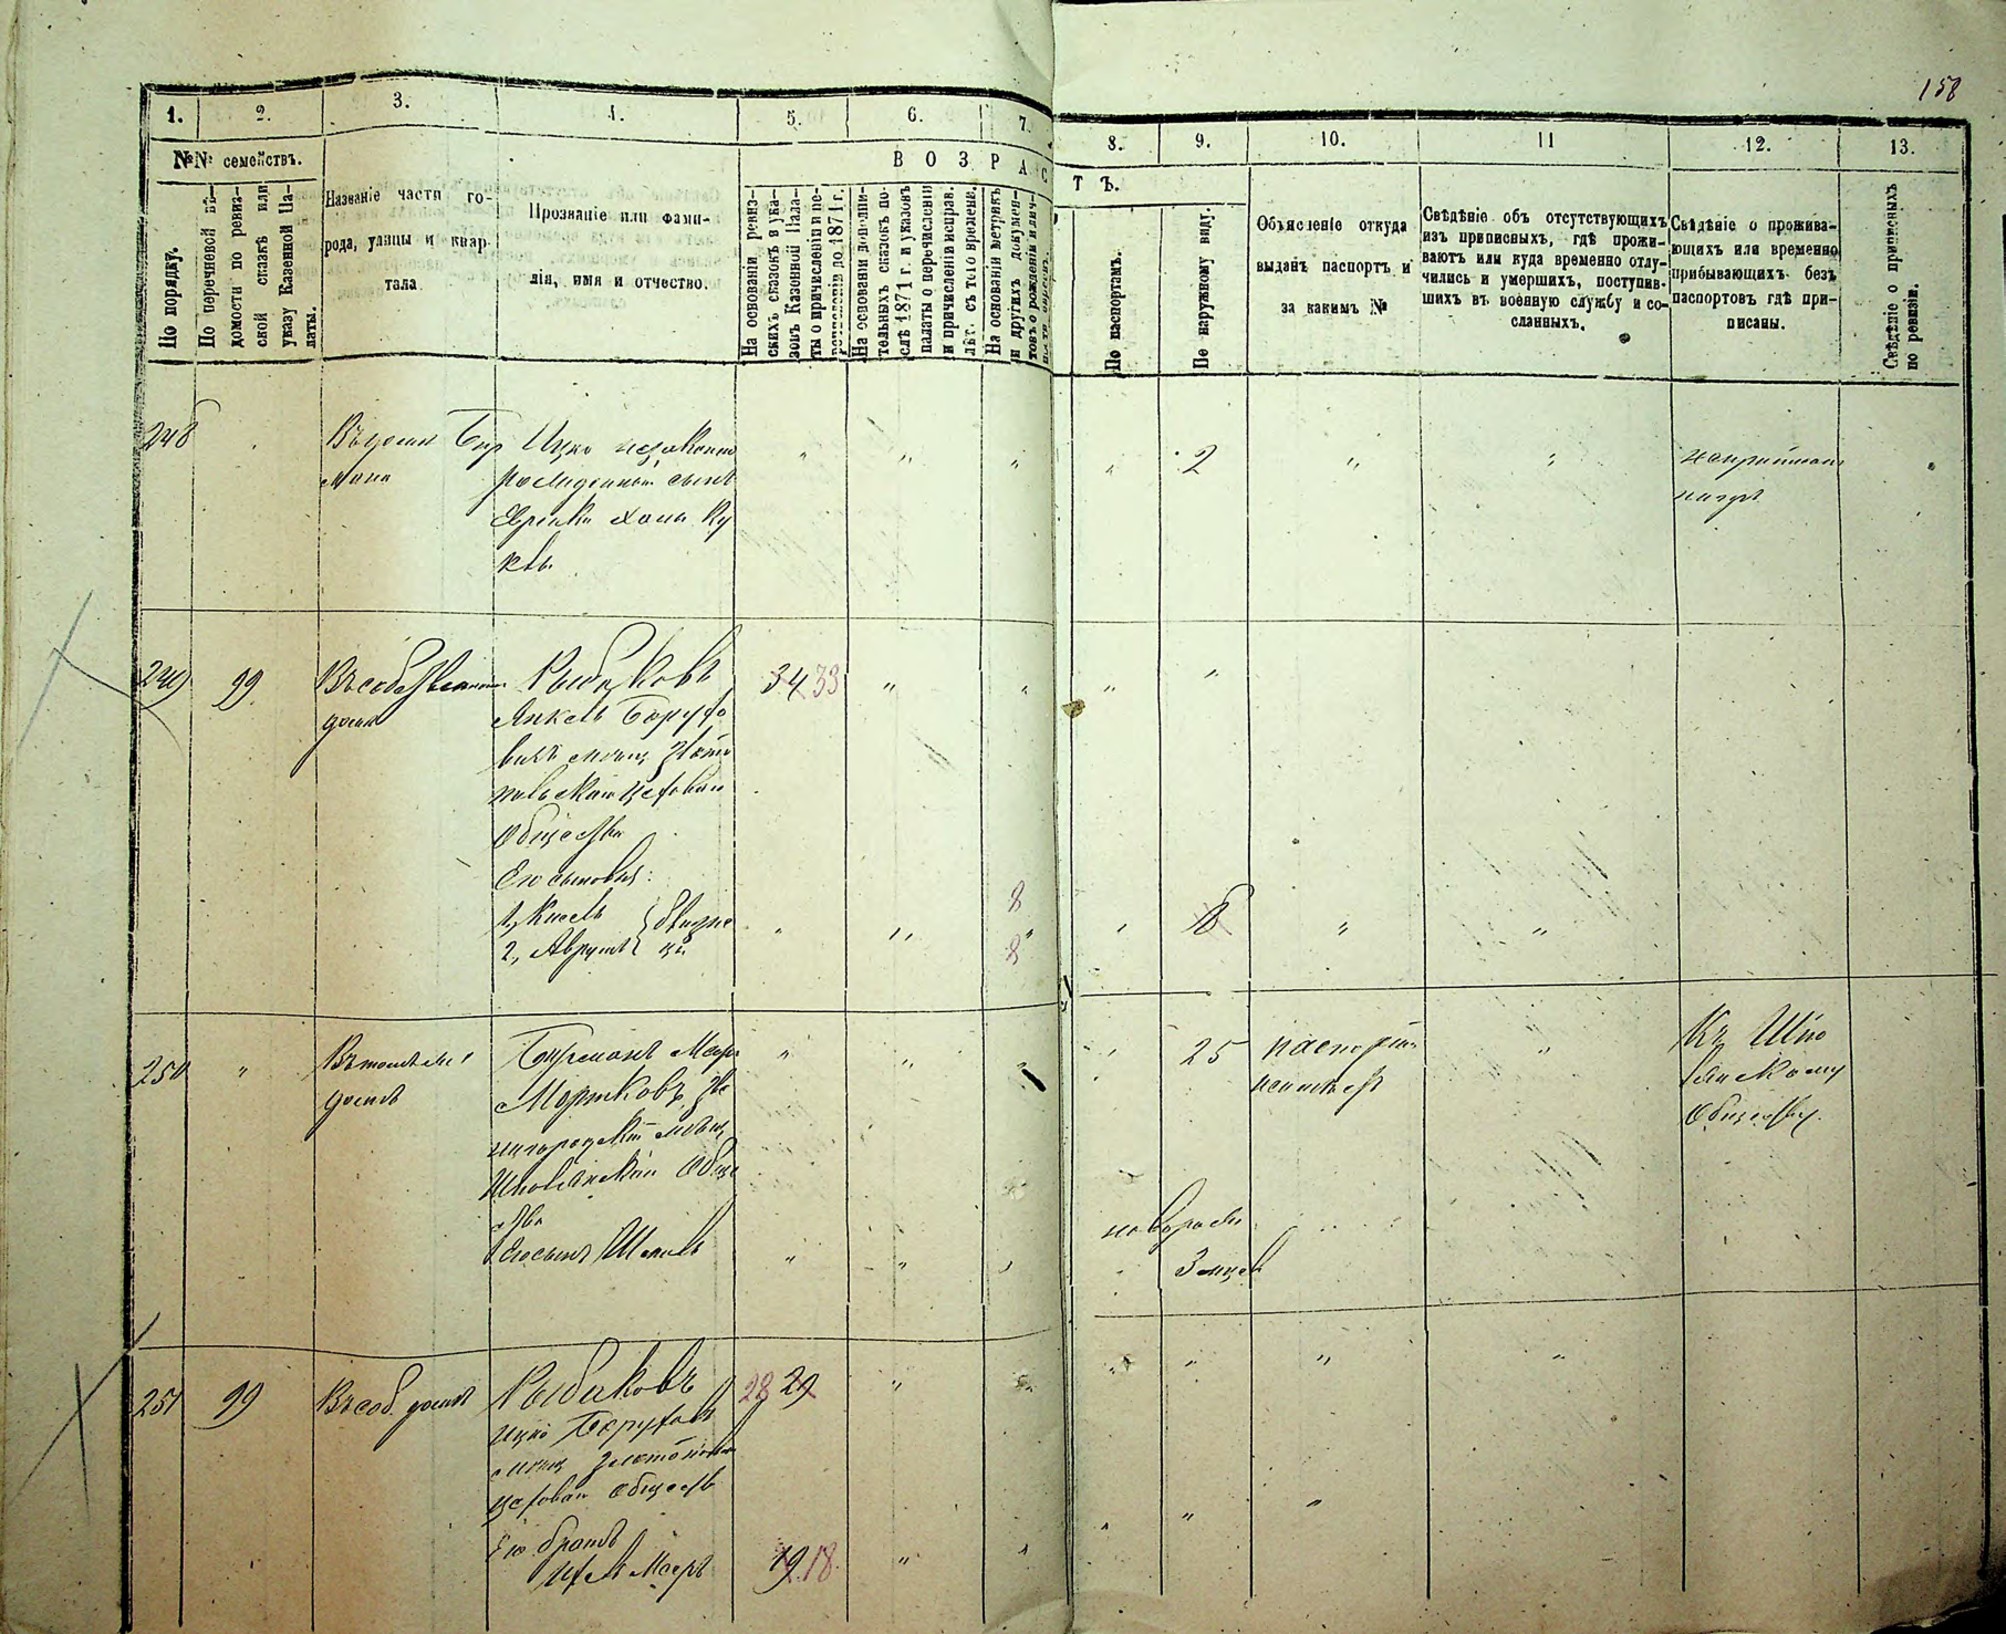 158
1. 2. 3. 4. 5. 6. 7. 8. 9. 10. 11 12. 13.
№№ семействъ.
По порядку.
По перечневой вѣ-
домости по ревиз-
ской сказкѣ или
указу Казенной Па-
латы.
Названіе части го-
рода, улицы и квар-
тала
Прозваніе или фами-
лія, имя и отчество.
ВОЗРАС
ТЪ.
На основаніи ревиз-
скихъ сказокъ и ука-
зовъ Казенной Пала-
ты о причисленіи и пе-
по 1871 г.
На основаніи дополни-
тельныхъ сказокъ по-
слѣ 1871 г. и указовъ
палаты о перечисленіи
и причисленіи исправ.
лѣт. съ того времени.
На основаніи метрикъ
и другихъ докумен-
товъ о рожденіи
По паспортамъ.
По наружному виду.
Объясненіе откуда
выданъ паспортъ и
за какимъ №
Свѣдѣніе объ отсутствующихъ
изъ приписныхъ, гдѣ прожи-
ваютъ или куда временно отлу-
чились и умершихъ, поступив-
шихъ въ военную службу и со-
сланныхъ.
Свѣдѣніе о прожива-
ющихъ или временно
прибывающихъ безъ
паспортовъ гдѣ при-
писаны.
Свѣдѣніе о приписныхъ
по ревизіи.
248 Въ домѣ Бир
мана
Ицко незаконно
рожденный сынъ
Еврейки Хаи Ку
2
249 99 Въ собственномъ
домѣ
Рыбаковъ
Янкель Борухо
вичъ мѣщ Злато
польскаго цехового
Общества
34 33
Его сыновья:
1, Кисель
2, Аврумъ
близне
цы
8
8
8
250 " Въ томъ же
домѣ
Бирманъ Меер
Мортковъ Зве
нигородскій мѣщ
Шполянскаго Обще
ства
25 паспорта
неимѣетъ
Къ Шпо
лянскому
Обществу.
Его сынъ Шмиль
по возрасту
3 мѣсяц
251 99 Въ соб. домѣ
Рыбаковъ
Ицко Боруховъ
мѣщ Златополь
цехован Обществ
28 29
Его братъ
Меер 19 18.